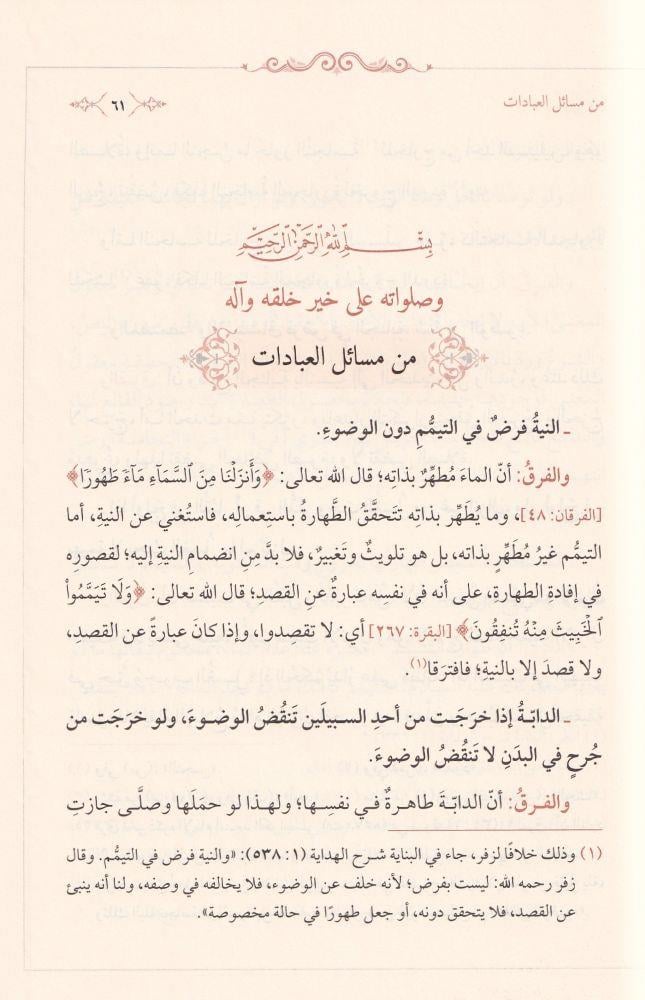 من مسائل العبادات
٦١
بِسْمِ اللهِ الرَّحْمٰنِ الرَّحِيمِ
وصلواته على خير خلقه وآله
من مسائل العبادات
ـ النيةُ فرضٌ في التيمُّمِ دون الوضوءِ.
والفرقُ: أنّ الماءَ مُطهِّرٌ بذاتِه؛ قال الله تعالى: ﴿وَأَنزَلْنَا مِنَ ٱلسَّمَآءِ مَآءً طَهُورًا﴾
[الفرقان: ٤٨]، وما يُطَهِّر بذاتِه تتَحقَّقُ الطَّهارةُ باستِعمالِه، فاستُغني عن النيةِ، أما
التيمُّم غيرُ مُطَهِّرٍ بذاته، بل هو تلويثٌ وتَغبيرٌ، فلا بدَّ مِنِ انضمامِ النية إليه؛ لقصورِه
في إفادةِ الطهارةِ، على أنه في نفسِه عبارةٌ عنِ القصدِ؛ قال الله تعالى: ﴿وَلَا تَيَمَّمُوا۟
ٱلْخَبِيثَ مِنْهُ تُنفِقُونَ﴾ [البقرة: ٢٦٧] أي: لا تقصِدوا، وإذا كانَ عبارةً عن القصدِ،
ولا قصدَ إلا بالنيةِ؛ فافترَقا(١)
ـ الدابّةُ إذا خرَجَت من أحدِ السبيلَين تَنقُضُ الوضوءَ، ولو خرَجَت من
جُرحٍ في البدَنِ لا تَنقُضُ الوضوءَ.
والفرقُ: أنّ الدابّةَ طاهرةٌ في نفسِها؛ ولهذا لو حمَلَها وصلَّى جازتِ
(١) وذلك خلافًا لزفر، جاء في البناية شرح الهداية (١: ٥٣٨): «والنية فرض في التيمُّم. وقال
زفر رحمه الله: ليست بفرض؛ لأنه خلف عن الوضوء، فلا يخالفه في وصفه، ولنا أنه ينبئ
عن القصد، فلا يتحقق دونه، أو جعل طهورًا في حالة مخصوصة».